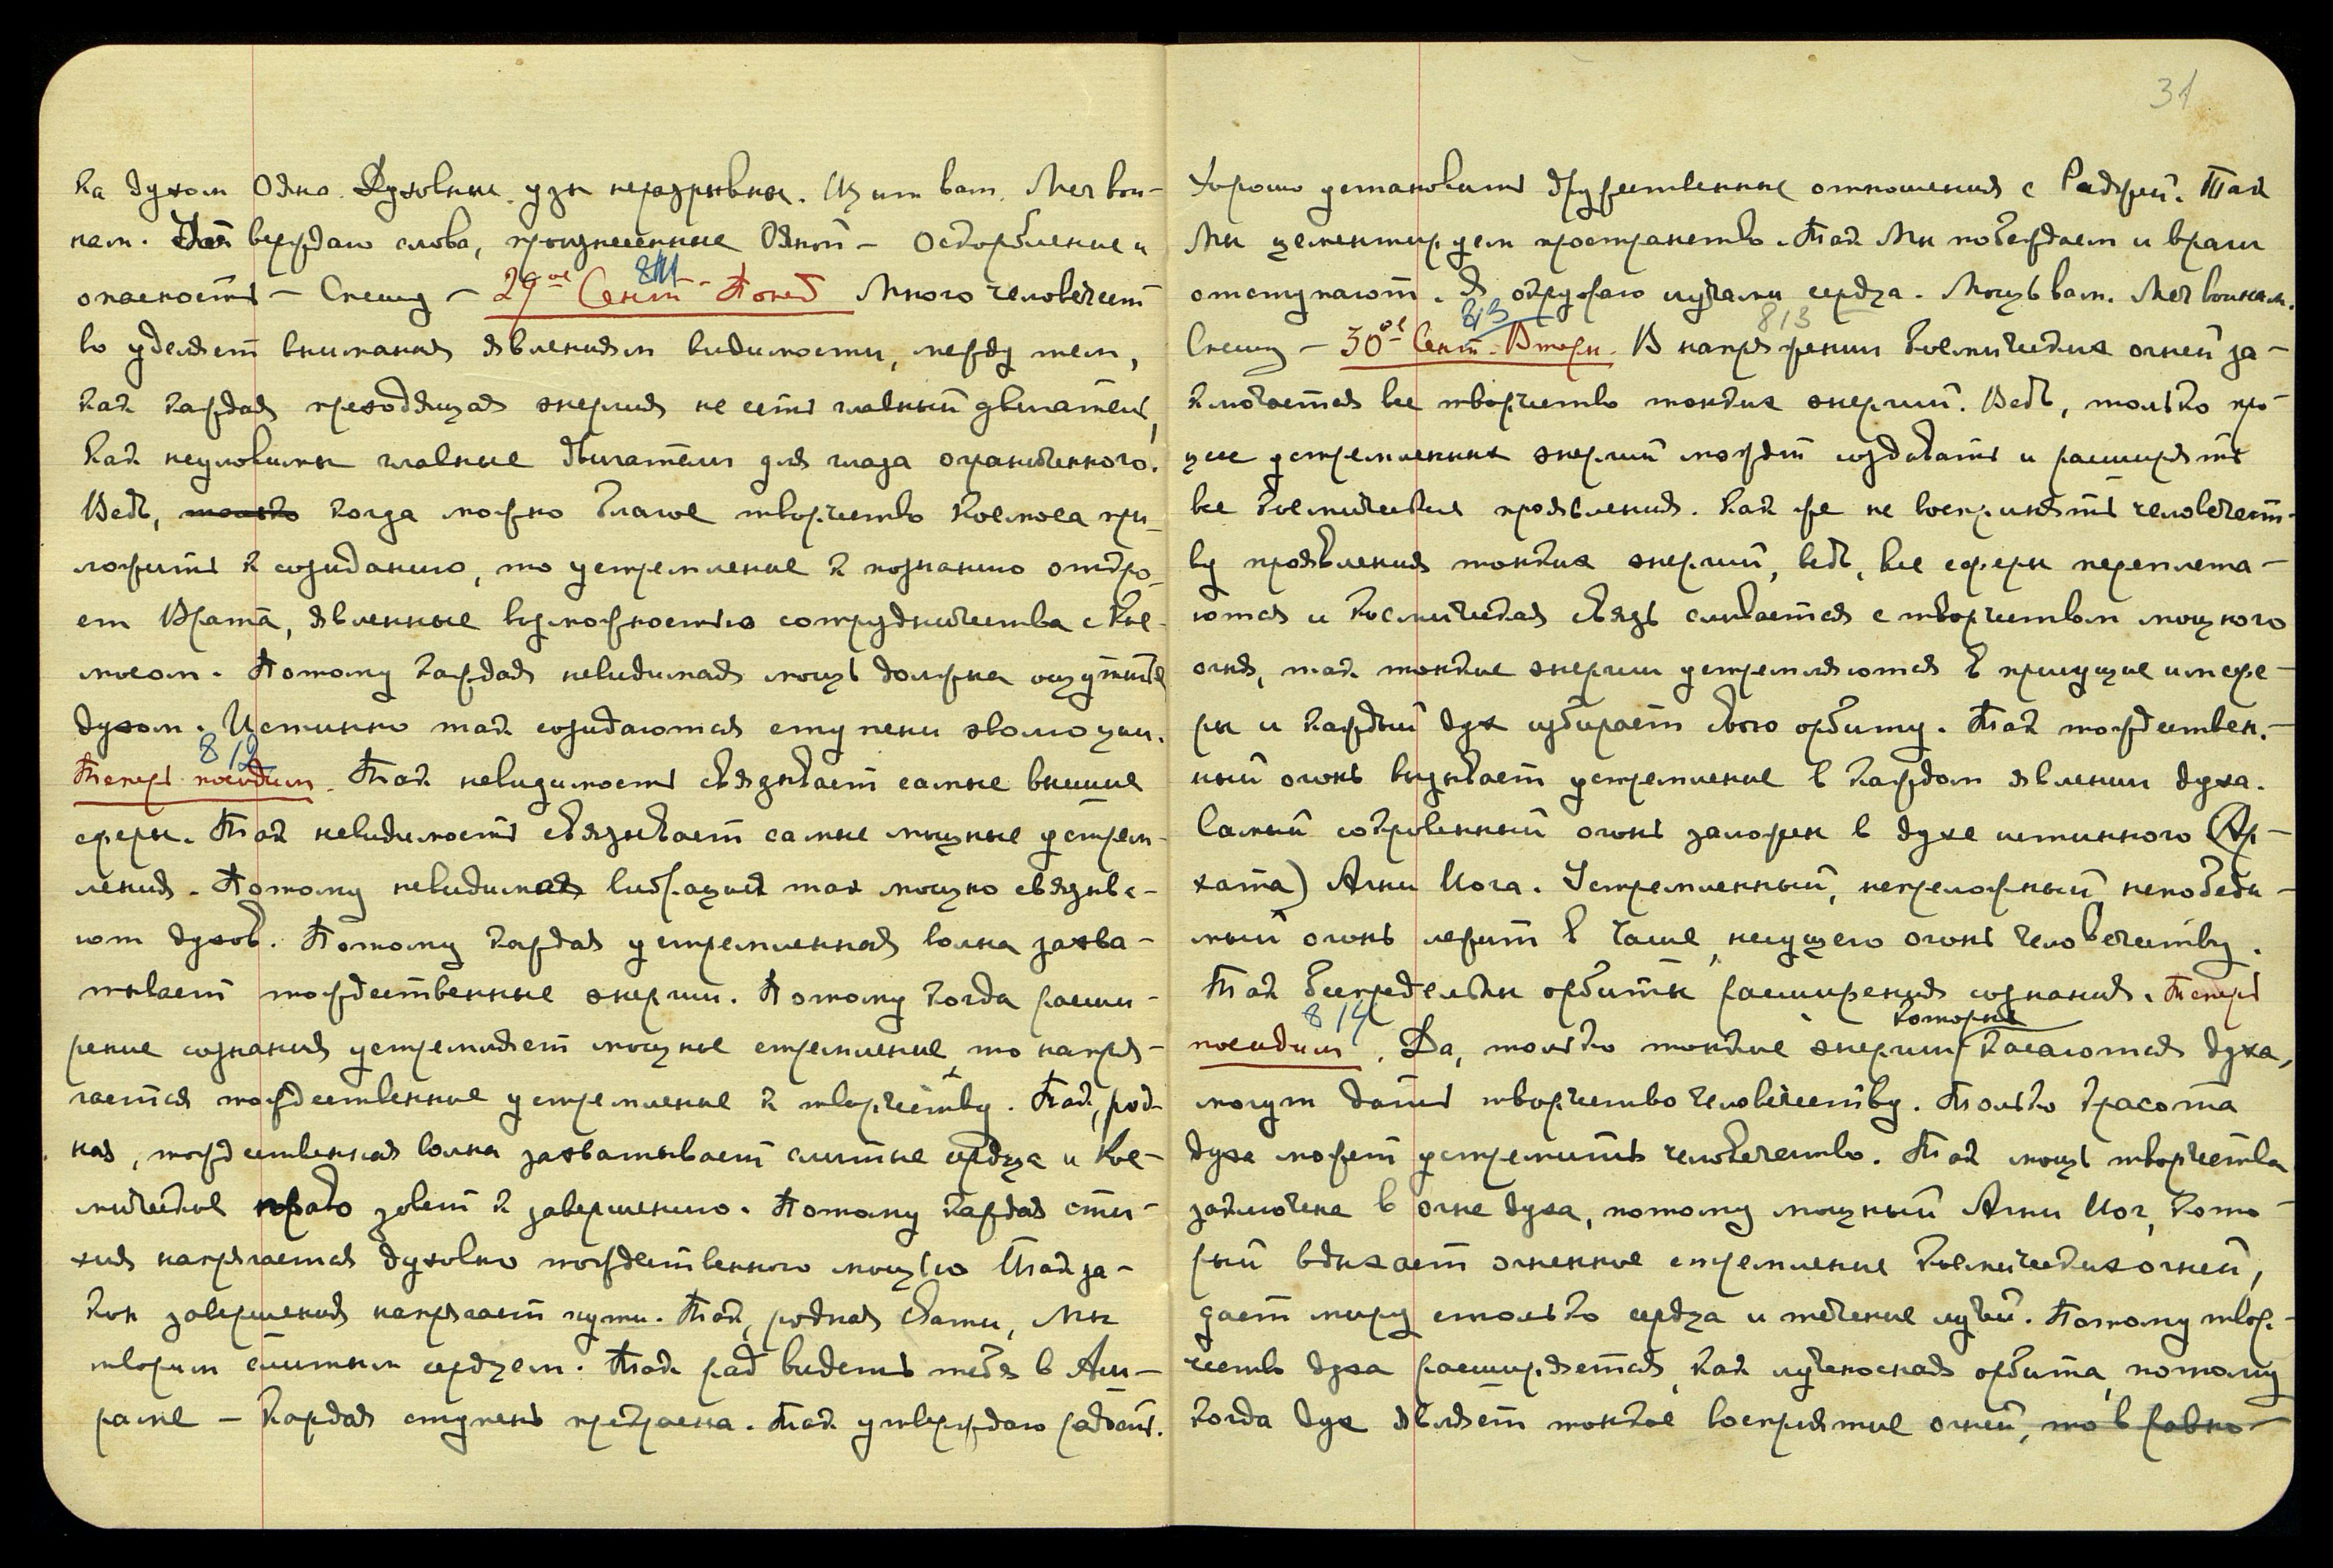 ка духом Одна. Духовные узы неразрывны. Щит вам. Меч вои-
нам. верждаю слова, произнесенные Одной — Оскорбление и
опасность — Спешу — 29ое Сент. Понед 811 Много человечест
во уделяет внимания явлениям видимости, между тем,
как каждая преходящая энергия не есть главный двигатель,
как неуловимы главные двигатели для глаза ограниченного.
Ведь, только когда можно благое творчество Космоса при-
ложить к созиданию, то устремление к познанию откро-
ет Врата, явленные возможностью сотрудничества с Кос-
мосом. Потому каждая невидимая мощь должна ощутиться
духом. Истинно так созидаются ступени эволюции.
812
Теперь посидим. Так невидимость связывает самые высшие
сферы. Так невидимость связывает самые мощные устрем-
ления. Потому невидимая вибрация так мощно связыва-
ют духов. Потому каждая устремленная волна захва-
тывает тождественные энергии. Потому когда расши-
рение сознания устремляет мощное стремление, то напря-
гается тождественное устремление к творчеству. Так, род-
ная, тождественная волна захватывает слитые сердца и Кос-
мическое право зовет к завершению. Потому каждая сти-
хия напрягается духовно тождественною мощью. Так за-
кон завершения напрягает пути. Так, родная Свати, Мы
творим слитым сердцем. Так рад видеть тебя в Аш-
раме — каждая ступень прекрасна. Так утверждаю работ.
31
Хорошо установить дружественные отношения с Рад Так
Мы цементируем пространство. Так Мы побеждаем и враги
отступают. Я окружаю лучами сердца. Мощь вам. Меч воинам.
813 813
Спешу — 30ое Сент. Вторн. В напряжении космических огней за-
ключается все творчество тонких энергий. Ведь, только про-
цесс устремленных энергий может создавать и расширять
все космические проявления. Как же не воспринять человечест-
ву проявления тонких энергий, ведь, все сферы переплета-
ются и космическая связь сливается с творчеством мощного
огня, так тонкие энергии устремляются в присущие им сфе-
ры и каждый дух избирает свою орбиту. Так тождествен-
ный огонь вызывает устремление в каждом явлении духа.
Самый сокровенный огонь заложен в духе истинного (Ар-
хата) Агни Йога. Устремленный, непреложный, непобеди-
мый огонь лежит в Чаше, несущего огонь человечеству.
Так беспредельны орбиты расширения сознания. Теперь
814 которые
посидим. Да, только тонкие энергии касаются духа,
могут дать творчество человечеству. Только красота
духа может устремить человечество. Так мощь творчества
заключена в огне духа, потому мощный Агни Йог, кото-
рый вдыхает огненное стремление космических огней,
дает миру столько сердца и течение лучей. Потому твор-
честв духа расширяется, как лученосная орбита, потому
когда дух являет тонкое восприятие огней, то в равно-